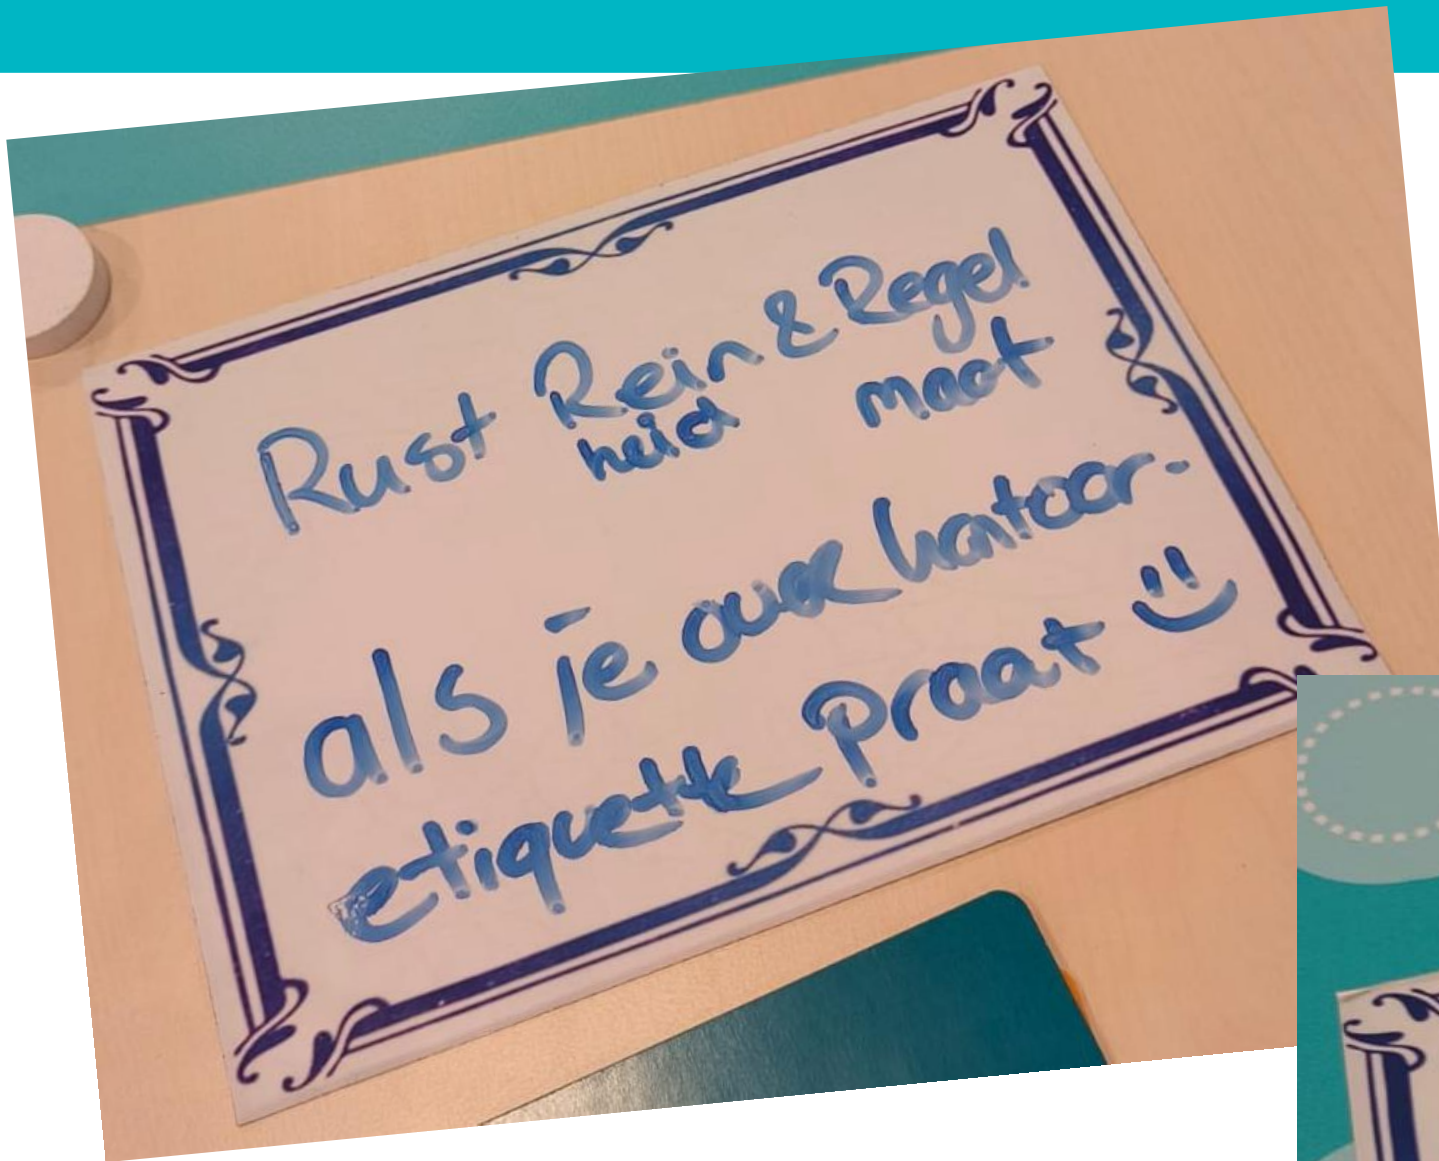 Rust Rein & Regel
heid maat
als je over kantoor-
etiquette praat